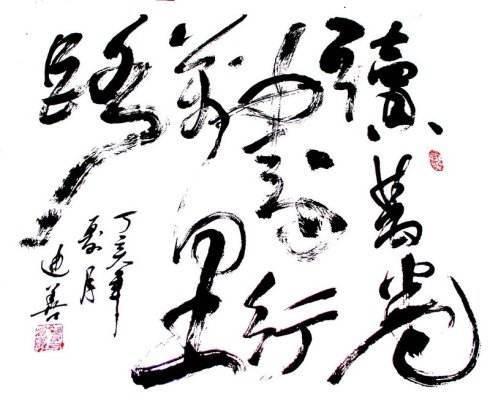 讀萬卷
書行
萬里
路
丁亥年
夏月
迪善